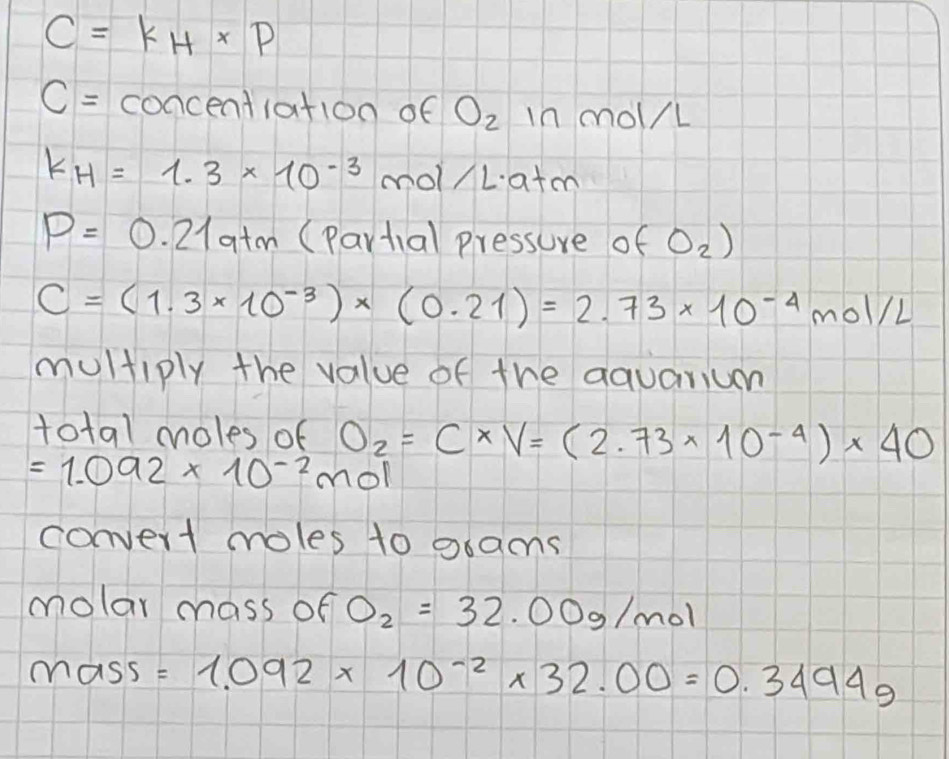 C = kH × P
C = concentration of O₂ in mol/L
kH = 1.3 × 10⁻³ mol/L·atm
P = 0.21 atm (Partial pressure of O₂)
C = (1.3 × 10⁻³) × (0.21) = 2.73 × 10⁻⁴ mol/L
multiply the value of the aquarium
total moles of O₂ = C × V = (2.73 × 10⁻⁴) × 40
= 1.092 × 10⁻² mol
convert moles to grams
molar mass of O₂ = 32.00 g/mol
mass = 1.092 × 10⁻² × 32.00 = 0.3494 g